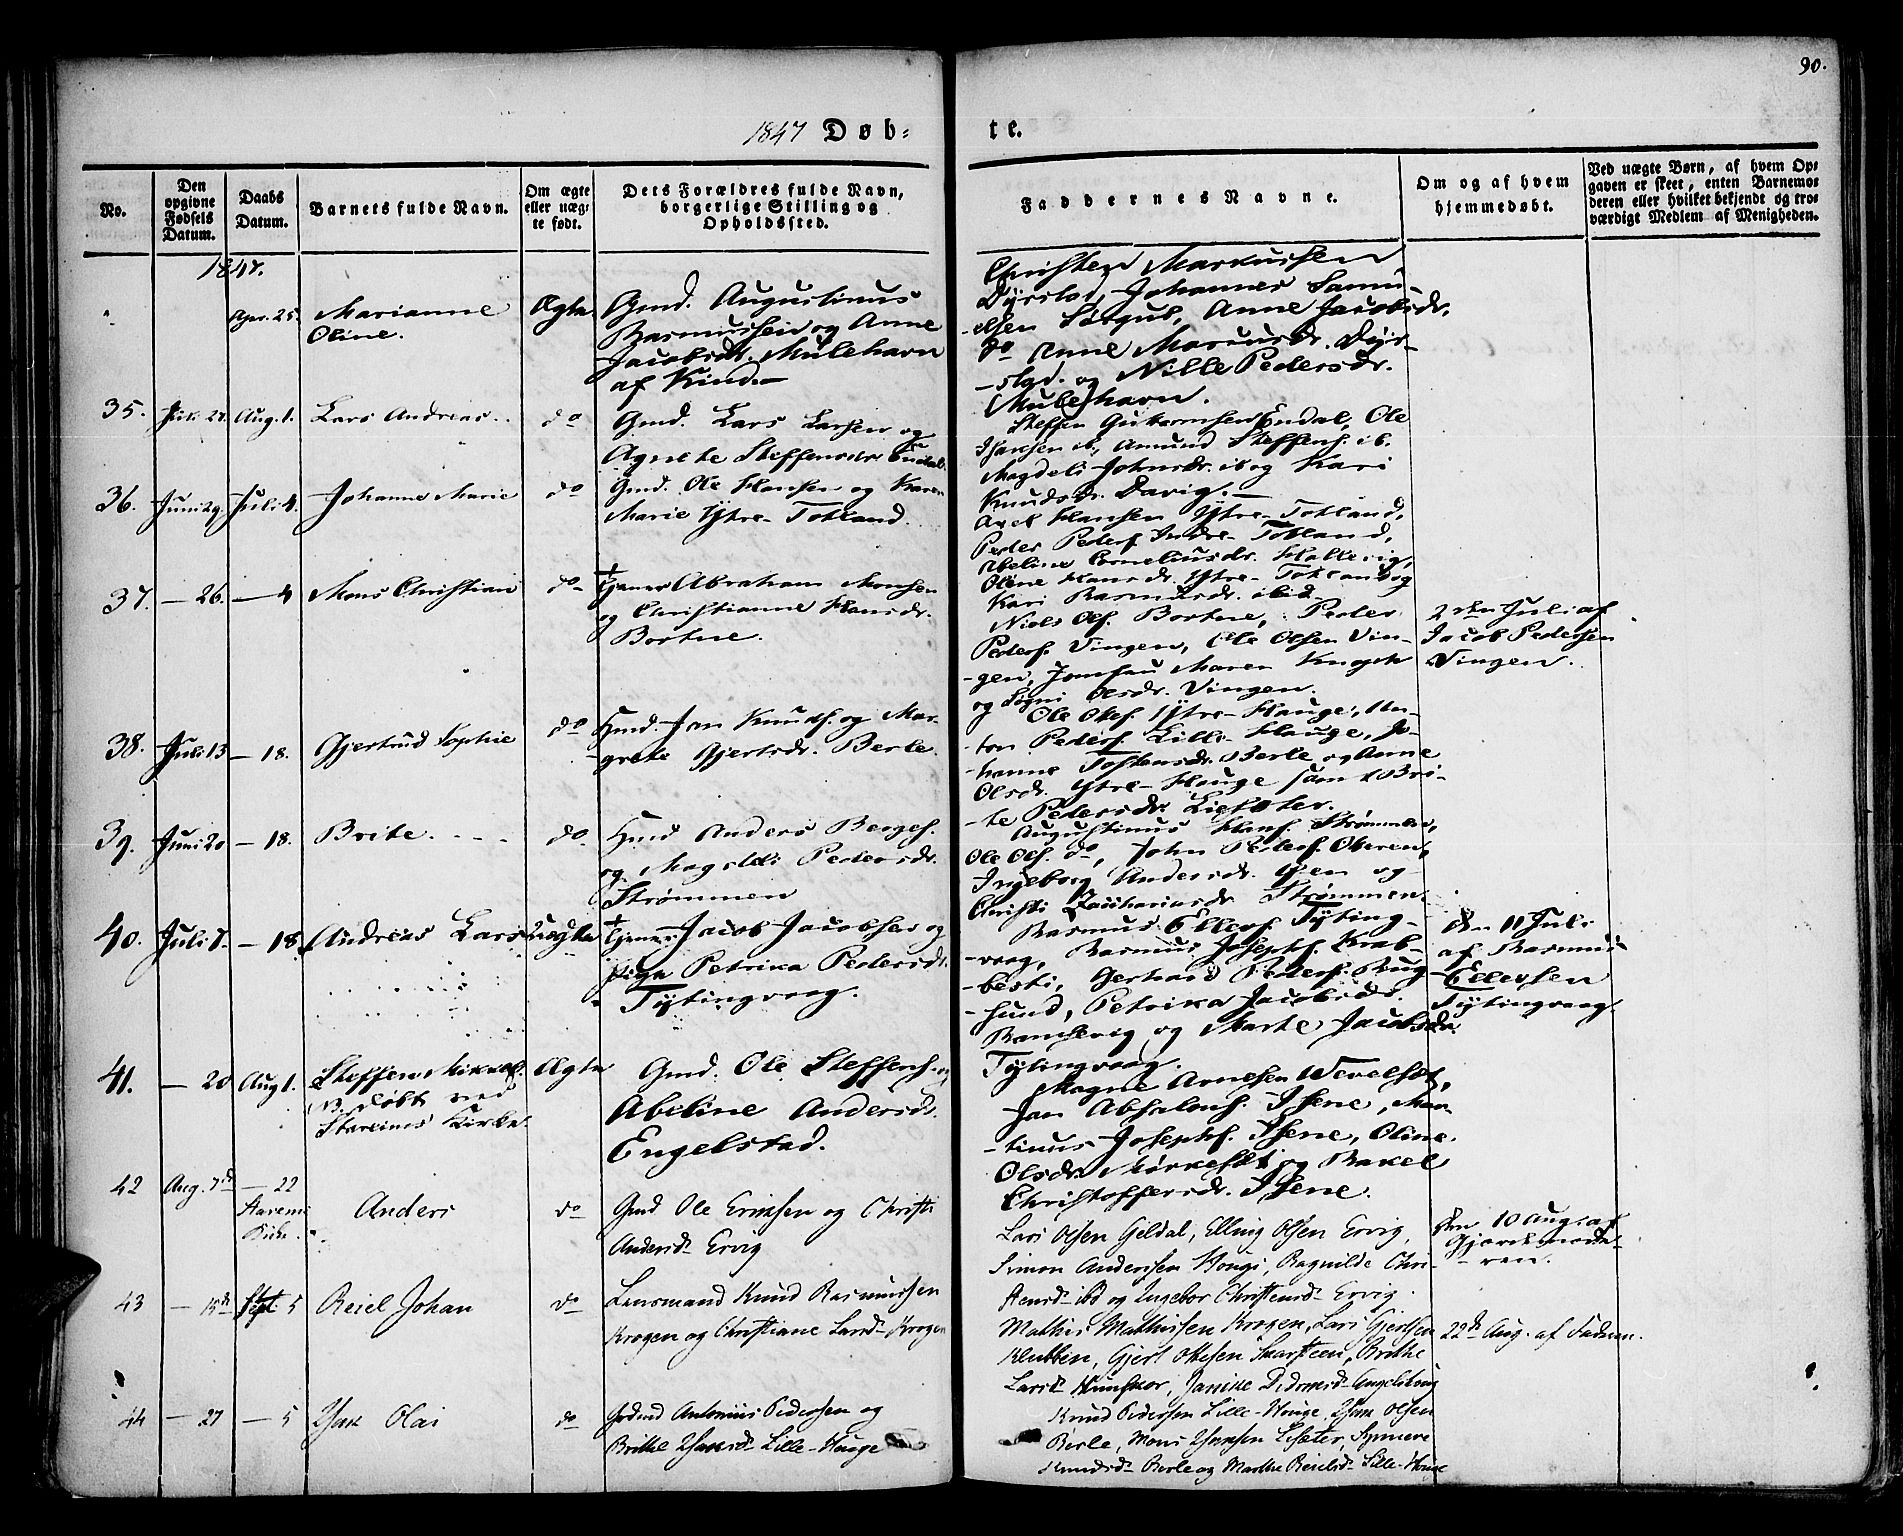 90.
1847 Døb-
te.
No.
Den
opgivne
Fødsels
Datum.
Daabs
Datum.
Barnets fulde Navn.
Om ægte
eller uæg-
te født.
Dets Forældres fulde Navn,
borgerlige Stilling og
Opholdssted.
Faddernes Navne.
Om og af hvem
hjemmedøbt.
Ved uægte Børn, af hvem Op-
gaven er skeet, enten Barnemo-
deren eller hvilket bekjendt og tro-
værdigt Medlem af Menigheden.
1847.
Apr. 25.
Marianne
Oline.
Ægte
Gmd. Augustinus
Rasmussen og Anne
Jacobsdr. Mulehavn
af Kind.
Christen Markussen
Dyrstad, Johannes Samu-
-elsen Sørgul, Anne Jacobsdr.
do Anne Marcusdr. Dyr-
-stad. og Nille Pedersdr.
Mulehavn.
35.
Aug. 1.
Lars Andreas
do
Gmd. Lars Larsen og
Agnete Steffensdr Endal
Steffen Endal, Ole
Hansen ib, Amund Steffens. ib.
Magdeli Johnsdr. ib og Kari
Knudsdr. Davig.
36.
Juni 29.
Juli 4.
Johanne Marie
do
Gmd. Ole Hansen og Karen
Marie Ytre-Totland.
Axel Hansen Ytre-Totland,
Peder Peders. Indre Totland,
Abeline Corneliusdr. Hallevig,
Oline Hansdr. Ytre-Totland og
Kari Rasmusdr. ibid.
37.
— 26.
— 4
Mons Christian
do
Tjener Abraham Monsen
og Christianne Hansdr.
Bortne.
Niels Ols. Bortne, Peder
Peders. Vingen, Ole Olsen Vin-
-gen, Jomfru Maren
og Søgni Olsdr. Vingen.
2den Juli af
Jacob Pedersen
Vingen.
38.
Juli 13
— 18.
Gjertrud Sophie
do
Hmd. Jan Knuds. og Mar-
grete Gjertsdr. Berle.
Ole Okes. Ytre-Hauge, An-
-ton Peders. Lille-Hauge, Jo-
-hanne Tostensdr. Berle og Anne
Olsdr. Ytre-Hauge samt Bri-
-te Pedersdr.
39.
Juni 20
— 18.
Brite.
do
Hmd Anders Berges.
og Magdeli Pedersdr.
Strømmen
Augustinus Hans. Strømmen,
Ole Ols. do, John Peders. Oberen,
Ingeborg Andersdr. Yen og
Christi Zachariasdr Strømmen.
40.
Juli 7.
— 18.
Andreas Lars
Uægte
Tjener Jacob Jacobsen og
Pige Petrika Pedersdr.
Tytingvaag.
Rasmus Ellefs. Tyting-
-vaag, Rasmus Josephs. Krab-
-besti, Gerhard Peders. Rug-
-sund, Petrika Jacobsdr.
Ramsevig og Marte Jacobsdr.
Tytingvaag.
den 11 Juli
af Rasmus
Ellefsen
Tytingvaag.
41.
— 20
Aug 1.
Steffen Mikael.
NB. døbt ved
Staveines Kirke.
Ægte
Gmd. Ole Steffens. og
Abeline Andersdr.
Engelstad.
Magne Arnesen Wevelset,
Jan Absalons. Isene, Mar-
-tinus Josephs. Isene, Oline
Olsdr. Mørkesti og Rakel
Christoffersdr. Isene.
42
Aug. 7d
— 22
Staveines
Kirke.
Anders
do
Gmd Ole Erik​sen og Christi
Andersd. Ervig
Lars Olsen Geldal, Elling Olsen Ervig,
Simon Andersen Hougi, Ragnilde Chri-
stensd. ibd og Ingebor Christensd. Ervig.
den 10 Aug. af
Gjordemode-
-ren.
43
— 15d
Sept. 5
Reiel Johan
do
Lensmand Knud Rasmussen
Krogen og Christiane Larsd. Krogen
Mathis Mathissen Krogen, Lars Gjertsen
Klubben, Gjert Okesen Skarsteen, Brithe
Larsd. Hunskor, Janike Didriksd. Angelskaug
22d Aug. af Fadren.
44
— 27
— 5
Isak Olai
do
Grdmd Antonius Pedersen og
Brithe Isaksd. Lille-Houge
Knud Pedersen Lille-Houge, Isak Olsen
Berle, Mons Isaksen Lisæter, Synneve
Knudsd. Berle og Marthe Reielsd. Lille-Houge